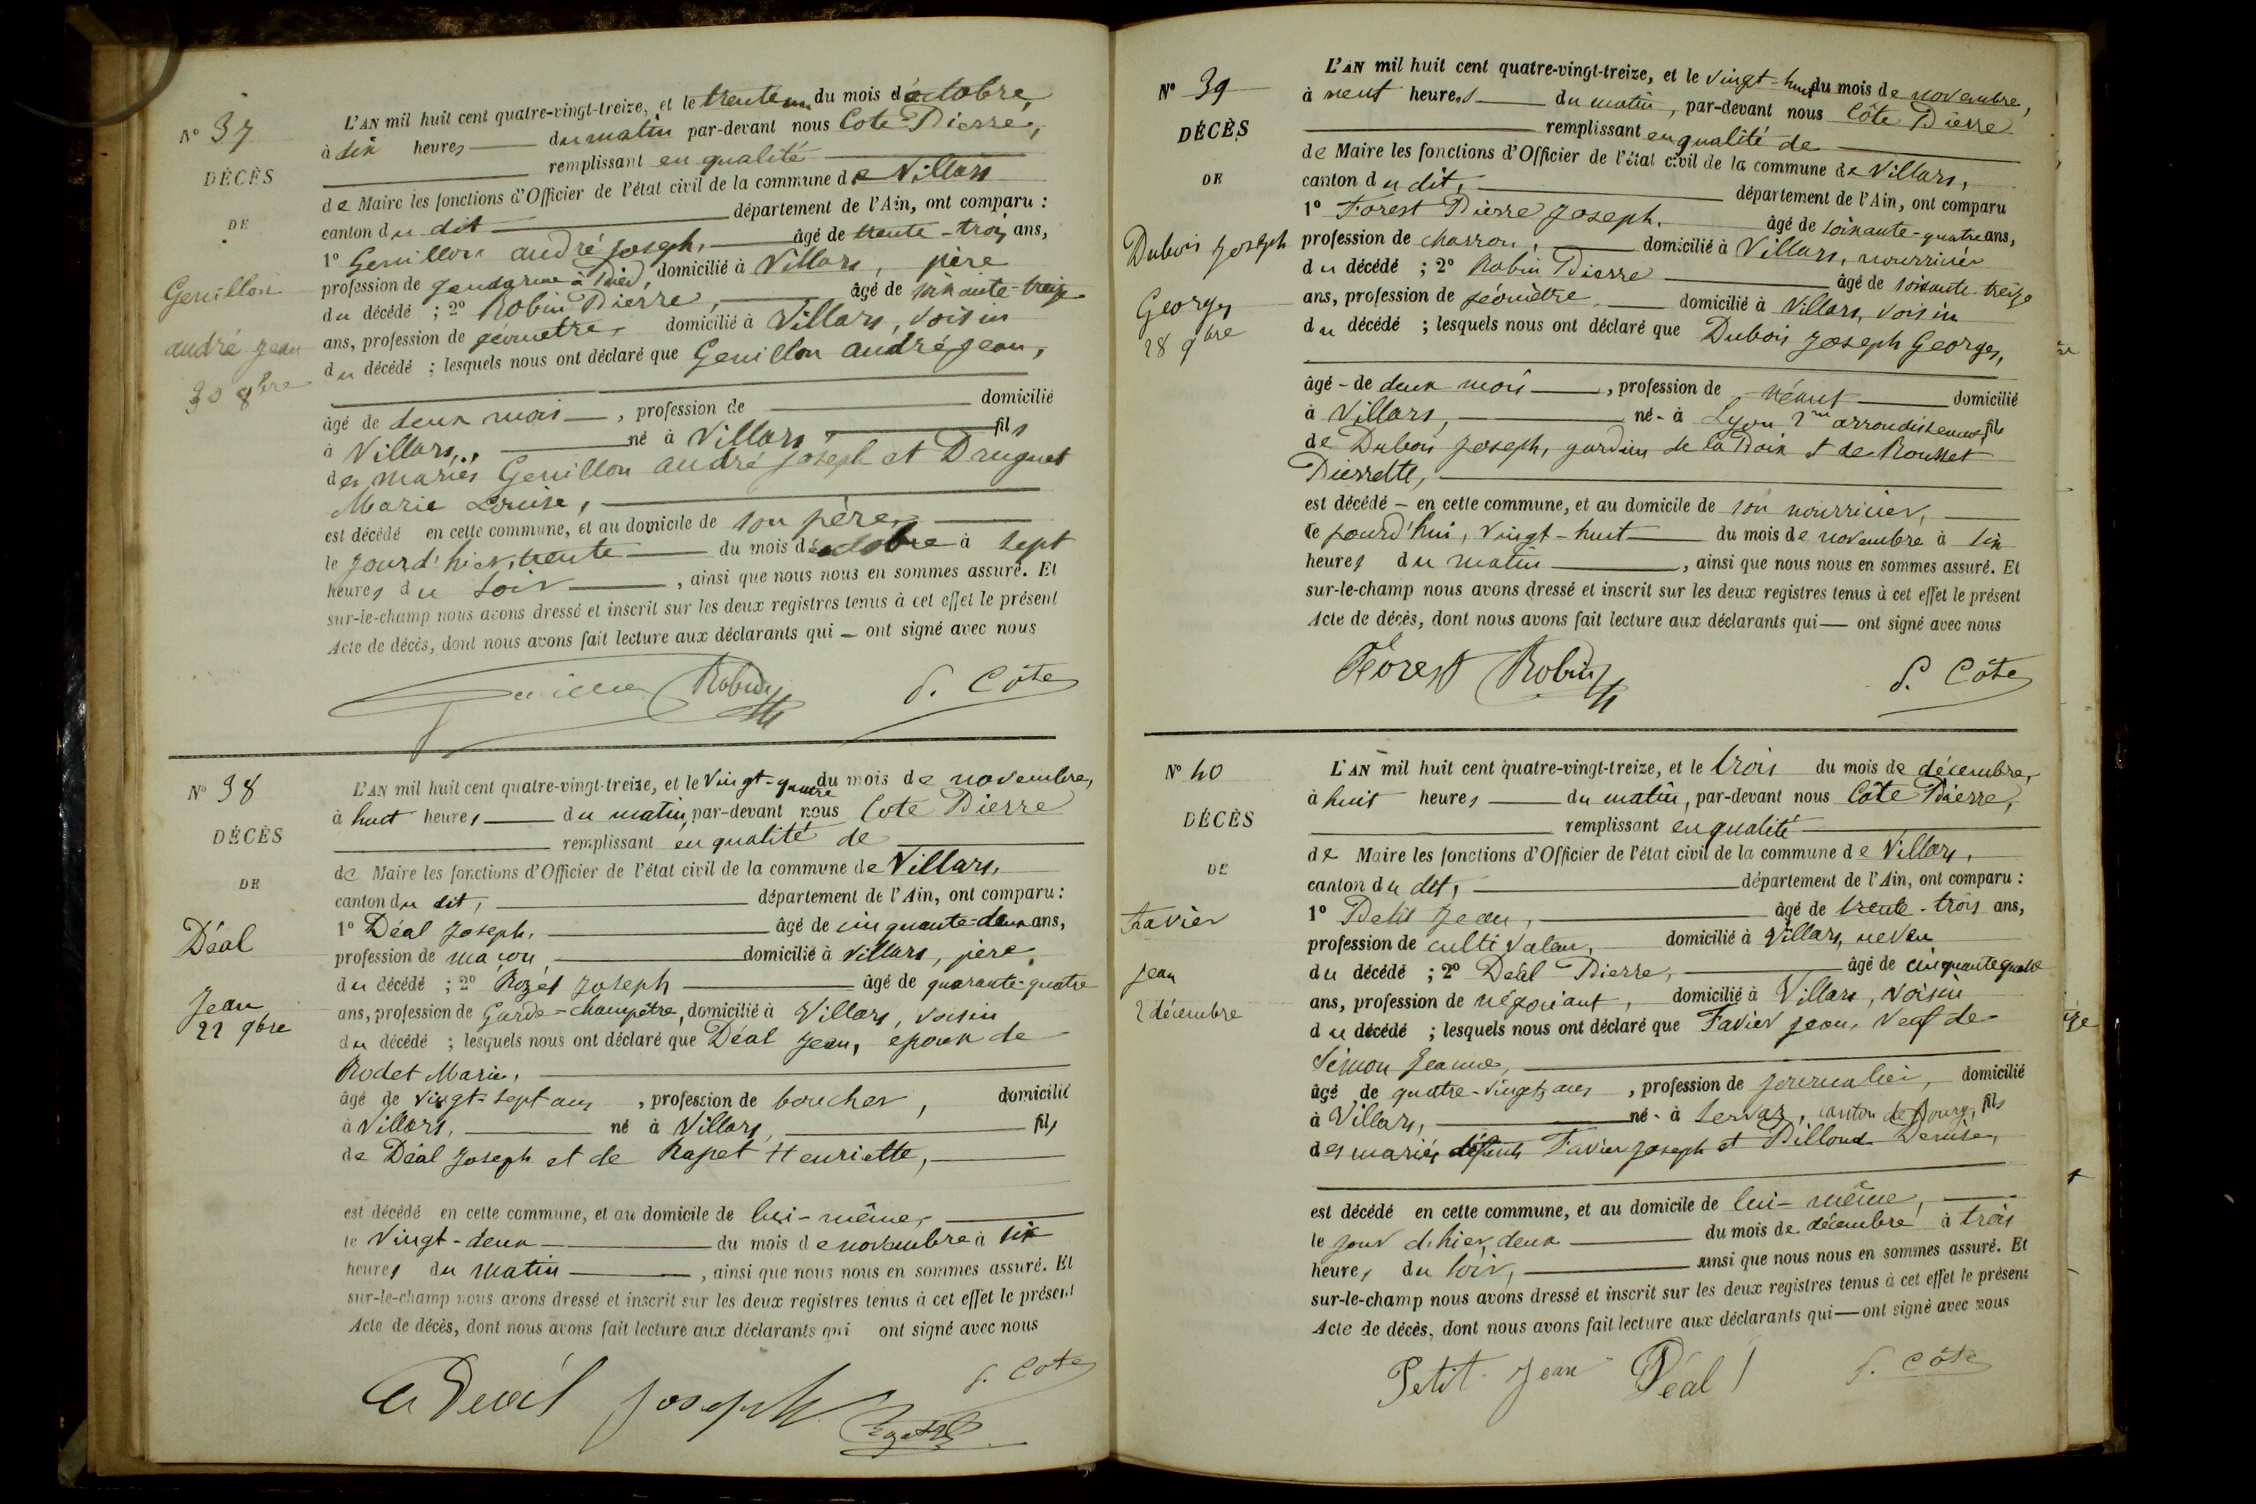 N° 37
DÉCÈS
DE
Genillon
André Jean
30 8bre
L'AN mil huit cent quatre-vingt-treize, et le trente un du mois d'octobre,
à six heures du matin par-devant nous Cote Pierre,
remplissant en qualité
de Maire les fonctions d'Officier de l'état civil de la commune de Villars
canton du dit département de l'Ain, ont comparu :
1° Genillon André Joseph, âgé de trente-trois ans,
profession de gendarme à pied, domicilié à Villars, père
du décédé ; 2° Robin Pierre, âgé de soixante-treize
ans, profession de géomètre, domicilié à Villars, voisin
du décédé ; lesquels nous ont déclaré que Genillon André Jean,
âgé de deux mois, profession de domicilié
à Villars, né à Villars, fils
des mariés Genillon André Joseph et Druguet
Marie Louise,
est décédé en cette commune, et au domicile de son père,
le jourd'hier, trente du mois d'octobre à sept
heures du soir, ainsi que nous nous en sommes assuré. Et
sur-le-champ nous avons dressé et inscrit sur les deux registres tenus à cet effet le présent
Acte de décès, dont nous avons fait lecture aux déclarants qui ont signé avec nous
Genillon Robin P. Côte
N° 38
DÉCÈS
DE
Déal
Jean
22 9bre
L'AN mil huit cent quatre-vingt-treize, et le vingt-quatre du mois de novembre,
à huit heures du matin, par-devant nous Cote Pierre
remplissant en qualité de
de Maire les fonctions d'Officier de l'état civil de la commune de Villars,
canton du dit, département de l'Ain, ont comparu :
1° Déal Joseph, âgé de cinquante-deux ans,
profession de maçon, domicilié à Villars, père
du décédé ; 2° Rozet Joseph âgé de quarante-quatre
ans, profession de Garde-champêtre, domicilié à Villars, voisin
du décédé ; lesquels nous ont déclaré que Déal Jean, époux de
Rodet Marie,
âgé de vingt-sept ans, profession de boucher, domicilié
à Villars, né à Villars, fils
de Déal Joseph et de Rapet Henriette,
est décédé en cette commune, et au domicile de lui-même,
le vingt-deux du mois de novembre à six
heures du matin, ainsi que nous nous en sommes assuré. Et
sur-le-champ nous avons dressé et inscrit sur les deux registres tenus à cet effet le présent
Acte de décès, dont nous avons fait lecture aux déclarants qui ont signé avec nous
Déal Joseph P. Cote
N° 39
DÉCÈS
DE
Dubois Joseph
Georges
28 9bre
L'AN mil huit cent quatre-vingt-treize, et le vingt-huit du mois de novembre,
à neuf heures du matin, par-devant nous Côte Pierre
remplissant en qualité de
de Maire les fonctions d'Officier de l'état civil de la commune de Villars,
canton du dit, département de l'Ain, ont comparu
1° Forest Pierre Joseph, âgé de soixante-quatre ans,
profession de charron, domicilié à Villars, nourricier
du décédé ; 2° Robin Pierre âgé de soixante-treize
ans, profession de géomètre domicilié à Villars, voisin
du décédé ; lesquels nous ont déclaré que Dubois Joseph Georges,
âgé de deux mois, profession de néant domicilié
à Villars, né à Lyon 2me arrondissement, fils
de Dubois Joseph, gardien de la Paix et de Rousset
Pierrette,
est décédé en cette commune, et au domicile de son nourricier,
ce jourd'hui, vingt-huit du mois de novembre à six
heures du matin, ainsi que nous nous en sommes assuré. Et
sur-le-champ nous avons dressé et inscrit sur les deux registres tenus à cet effet le présent
Acte de décès, dont nous avons fait lecture aux déclarants qui ont signé avec nous
Forest Robin P. Côte
N° 40
DÉCÈS
DE
Favier
Jean
2 décembre
L'AN mil huit cent quatre-vingt-treize, et le trois du mois de décembre,
à huit heures du matin, par-devant nous Côte Pierre,
remplissant en qualité
de Maire les fonctions d'Officier de l'état civil de la commune de Villars,
canton du dit, département de l'Ain, ont comparu :
1° Petit Jean, âgé de trente-trois ans,
profession de cultivateur, domicilié à Villars, neveu
du décédé ; 2° Déal Pierre, âgé de cinquante quatre
ans, profession de négociant, domicilié à Villars, voisin
du décédé ; lesquels nous ont déclaré que Favier Jean, veuf de
Simon Jeanne,
âgé de quatre-vingts ans, profession de journalier, domicilié
à Villars, né à Servas, canton de Bourg, fils
des mariés défunts Favier Joseph et Pilloud Denise,
est décédé en cette commune, et au domicile de lui-même,
le jour d'hier, deux du mois de décembre à trois
heures du soir, ainsi que nous nous en sommes assuré. Et
sur-le-champ nous avons dressé et inscrit sur les deux registres tenus à cet effet le présent
Acte de décès, dont nous avons fait lecture aux déclarants qui ont signé avec nous
Petit Jean Déal P. Côte